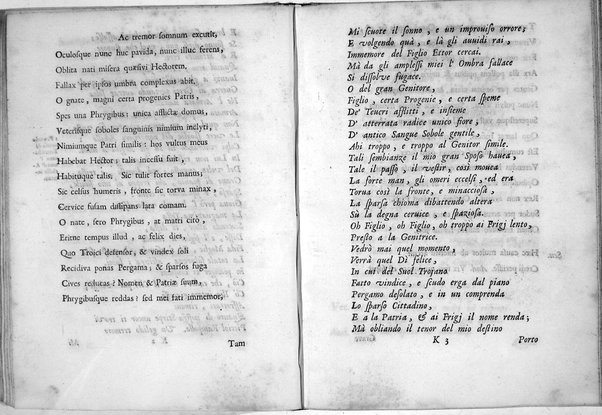 Ac tremor somnum excutit,
Oculosque nunc huc pavida, nunc illuc ferens,
Oblita nati misera quæsivi Hectorem.
Fallax per ipsos umbra complexus abit.
O gnate, magni certa progenies Patris,
Spes una Phrygibus: unica afflictæ domus,
Veterisque soboles sanguinis nimium inclyti,
Nimiumque Patri similis: hos vultus meus
Habebat Hector: talis incessu fuit,
Habituque talis. Sic tulit fortes manus;
Sic celsus humeris, fronte sic torva minax,
Cervice fusam dissipans lata comam.
O nate, sero Phrygibus, at matri citò,
Eritne tempus illud, ac felix dies,
Quo Troici defensor, & vindex soli
Recidiva ponas Pergama; & sparsos fuga
Cives reducas? Nomen & Patriæ suum,
Phrygibusque reddas? sed mei fati immemor,
K 2 Tam
Mi scuote il sonno, e un improuiso orrore;
E volgendo quà, e là gli auuidi rai,
Immemore del Figlio Ettor cercai.
Mà da gli amplessi miei l'Ombra fallace
Si dissolve fugace.
O del gran Genitore,
Figlio, certa Progenie, e certa speme
De' Teucri afflitti, e insieme
D' atterrata radice unico fiore;
D' antico Sangue Sobole gentile,
Ahi troppo, e troppo al Genitor simile.
Tali sembianze il mio gran Sposo hauea,
Tale il passo, il vestir, così mouea
La forte man, gli omeri eccelsi, ed era
Torua così la fronte, e minacciosa,
La sparsa chioma dibattendo altera
Sù la degna ceruice, e spaziosa.
Oh Figlio, oh Figlio, oh troppo ai Frigj lento,
Presto a la Genitrice.
Vedrò mai quel momento,
Verrà quel Dì felice,
In cui del Suol Trojano
Fatto vindice, e scudo erga dal piano
Pergamo desolato, e in un comprenda
Lo sparso Cittadino,
E a la Patria, & ai Frigj il nome renda;
Mà obliando il tenor del mio destino
K 3 Porto